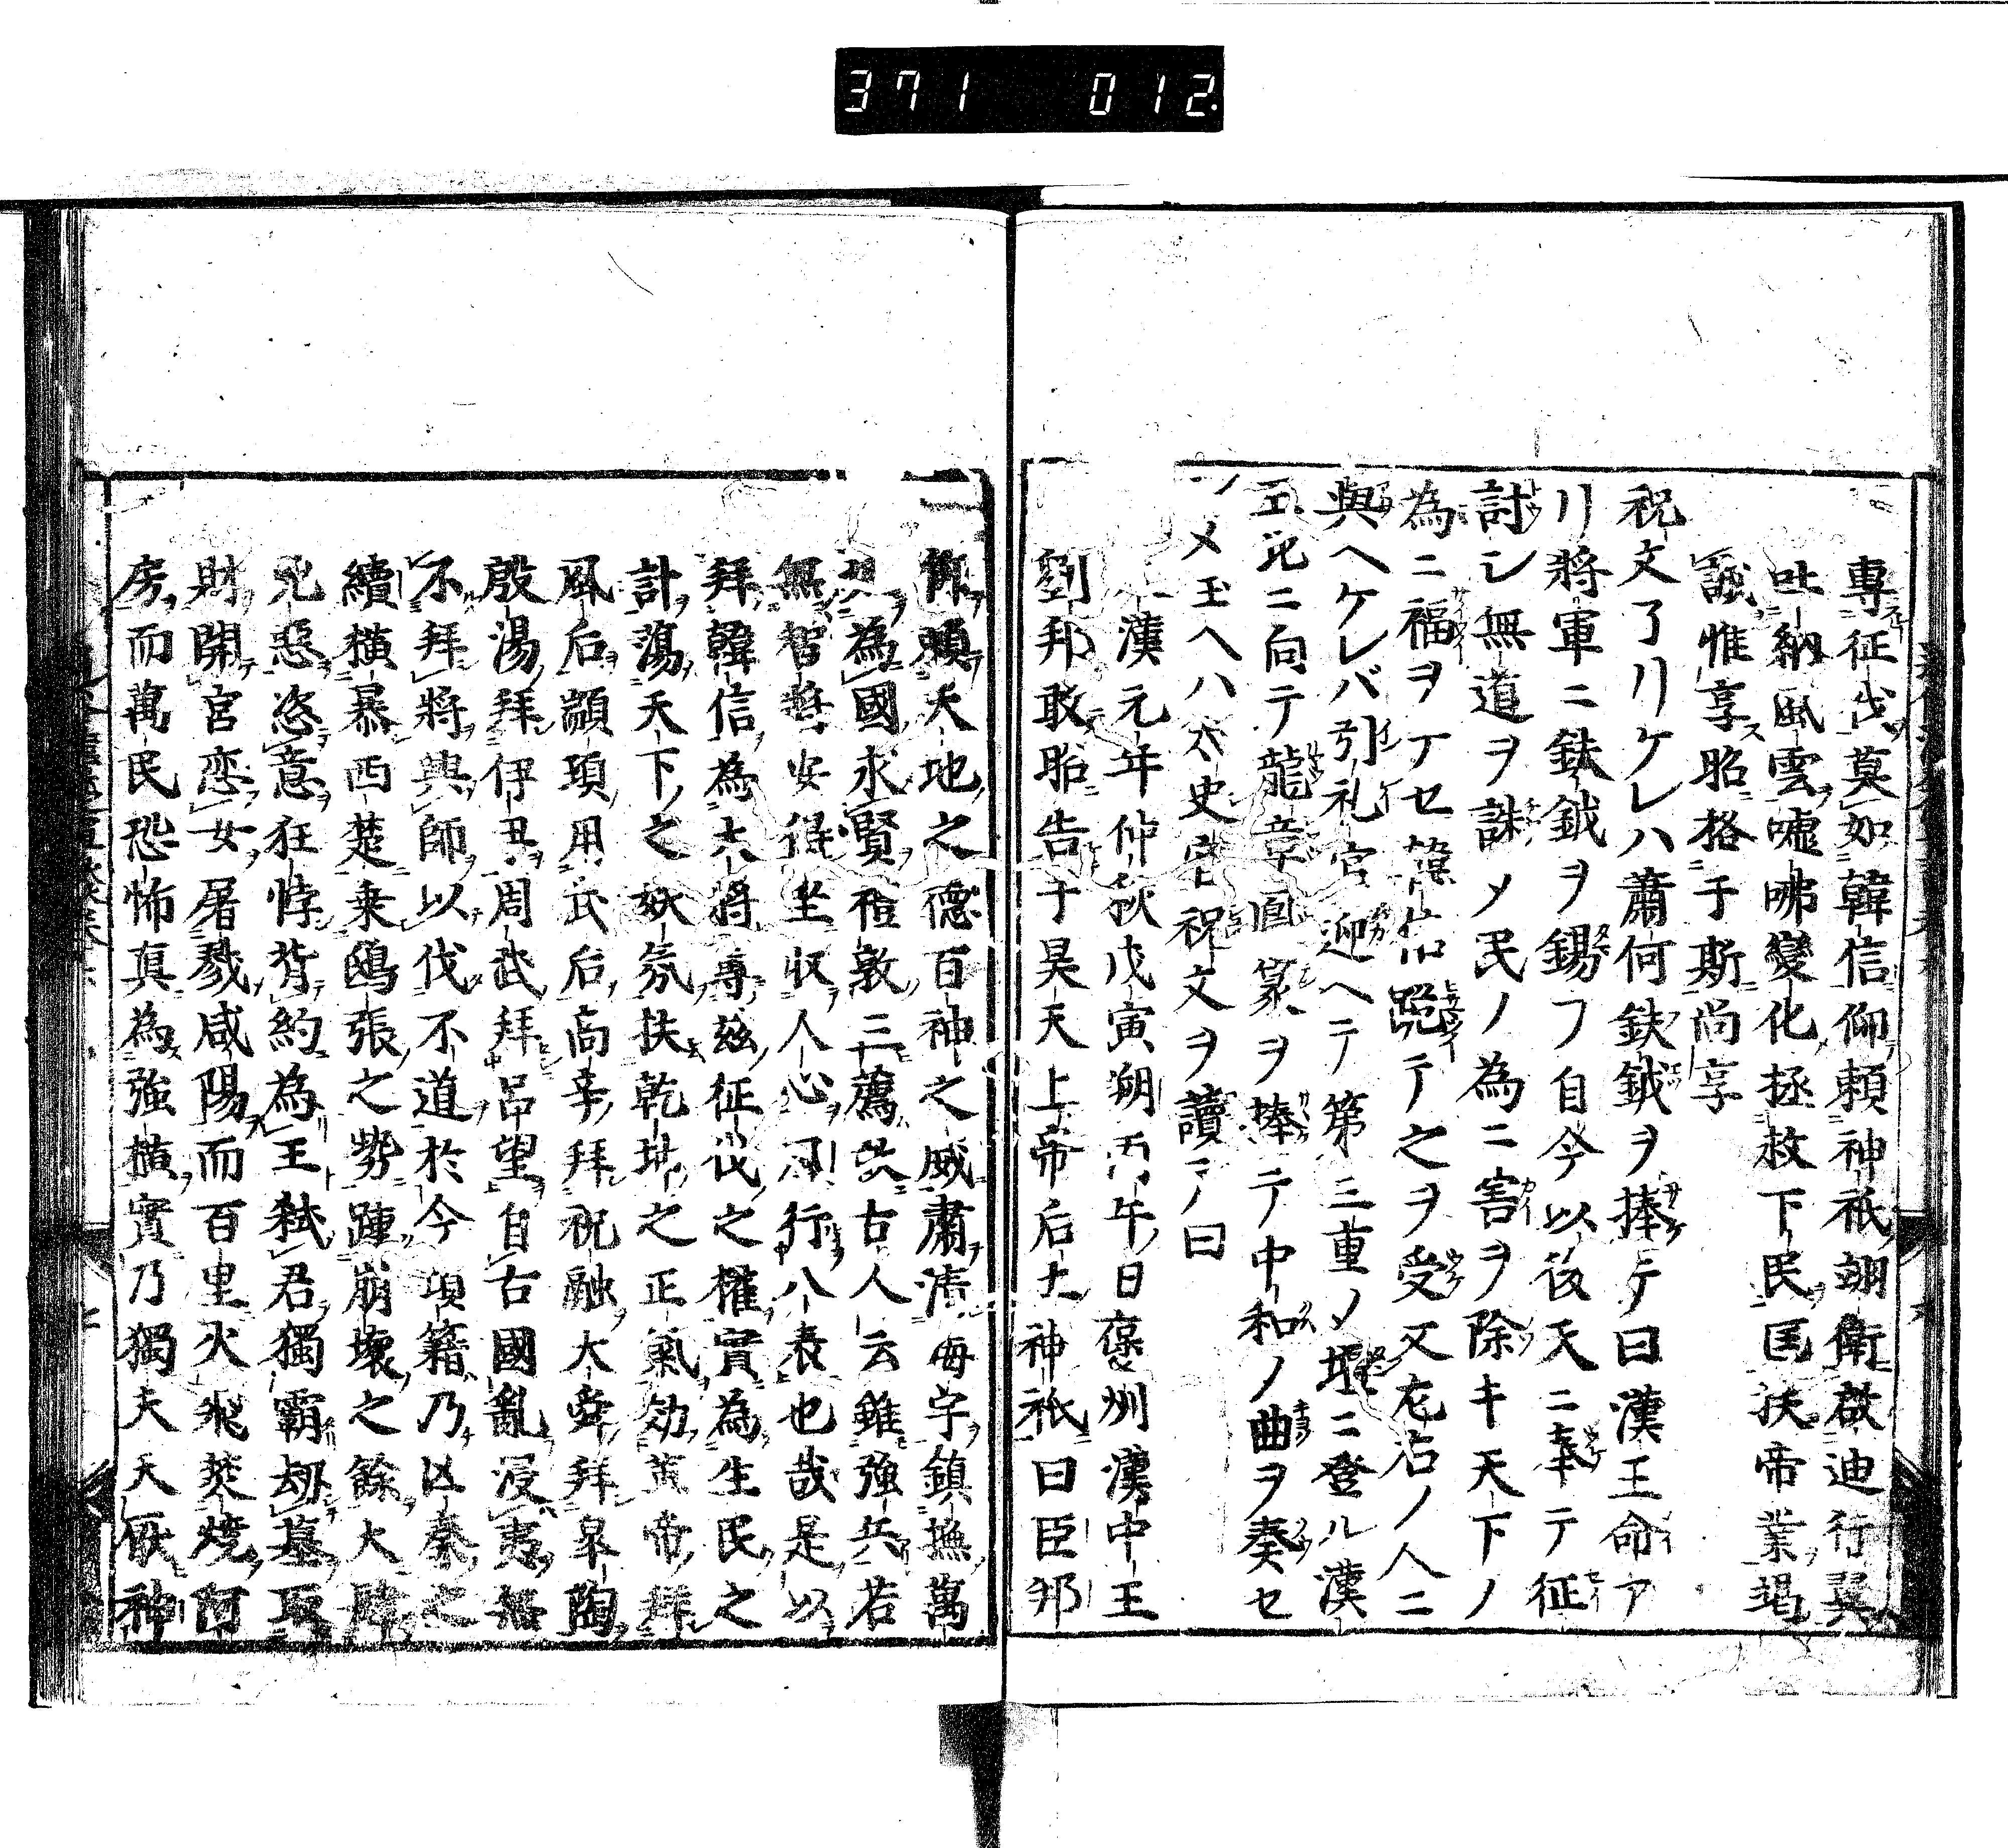 371 012
專征伐莫如韓信仰頼神祇翊衛啓迪行巽
吐納風雲嘘咈變化拯救下民匡扶帝業竭
誠惟享昭格于斯尚享
祝文了リケレハ蕭何鈇鉞ヲ捧テ曰漢王命ア
リ將軍ニ鈇鉞ヲ錫フ自今以後天ニ奉テ征
討シ無道ヲ誅メ民ノ為ニ害ヲ除キ天下ノ
為ニ福ヲナセ韓信跪テ之ヲ受又左右ノ人ニ
與ヘケレバ引礼官迎ヘテ第三重ノ壇ニ登ル漢
王北ニ向テ龍章鳳篆ヲ捧テ中和ノ曲ヲ奏セ
シメ玉ヘハ太史官祝文ヲ讀テ曰
漢元年仲秋戊寅朔丙午日褒州漢中王
劉邦敢昭告于昊天上帝后土神祇曰臣邦
仰頼天地之德百神之威肅清海宇鎮撫萬
為國求賢禮敦三薦古人云雖強兵若
無智將安得坐収人心行八表也哉是以
拜韓信為大將專茲征伐之權實為生民之
計蕩天下之妖氛扶乾坤之正氣効黄帝拜
風后顓頊用武后高辛拜祝融大舜拜皐陶
殷湯拜伊尹周武拜呂望自古國亂浸夷無
不拜將興師以伐不道於今項籍乃凶秦之
續横暴西楚乗鴟張之勢踵崩壊之餘大肆
兇惡恣意狂悖背約為王弑君獨霸刼墓取
財開宮恋女屠戮咸陽而百里火飛焚燒阿
房而萬民恐怖真為強横實乃獨夫天厭神